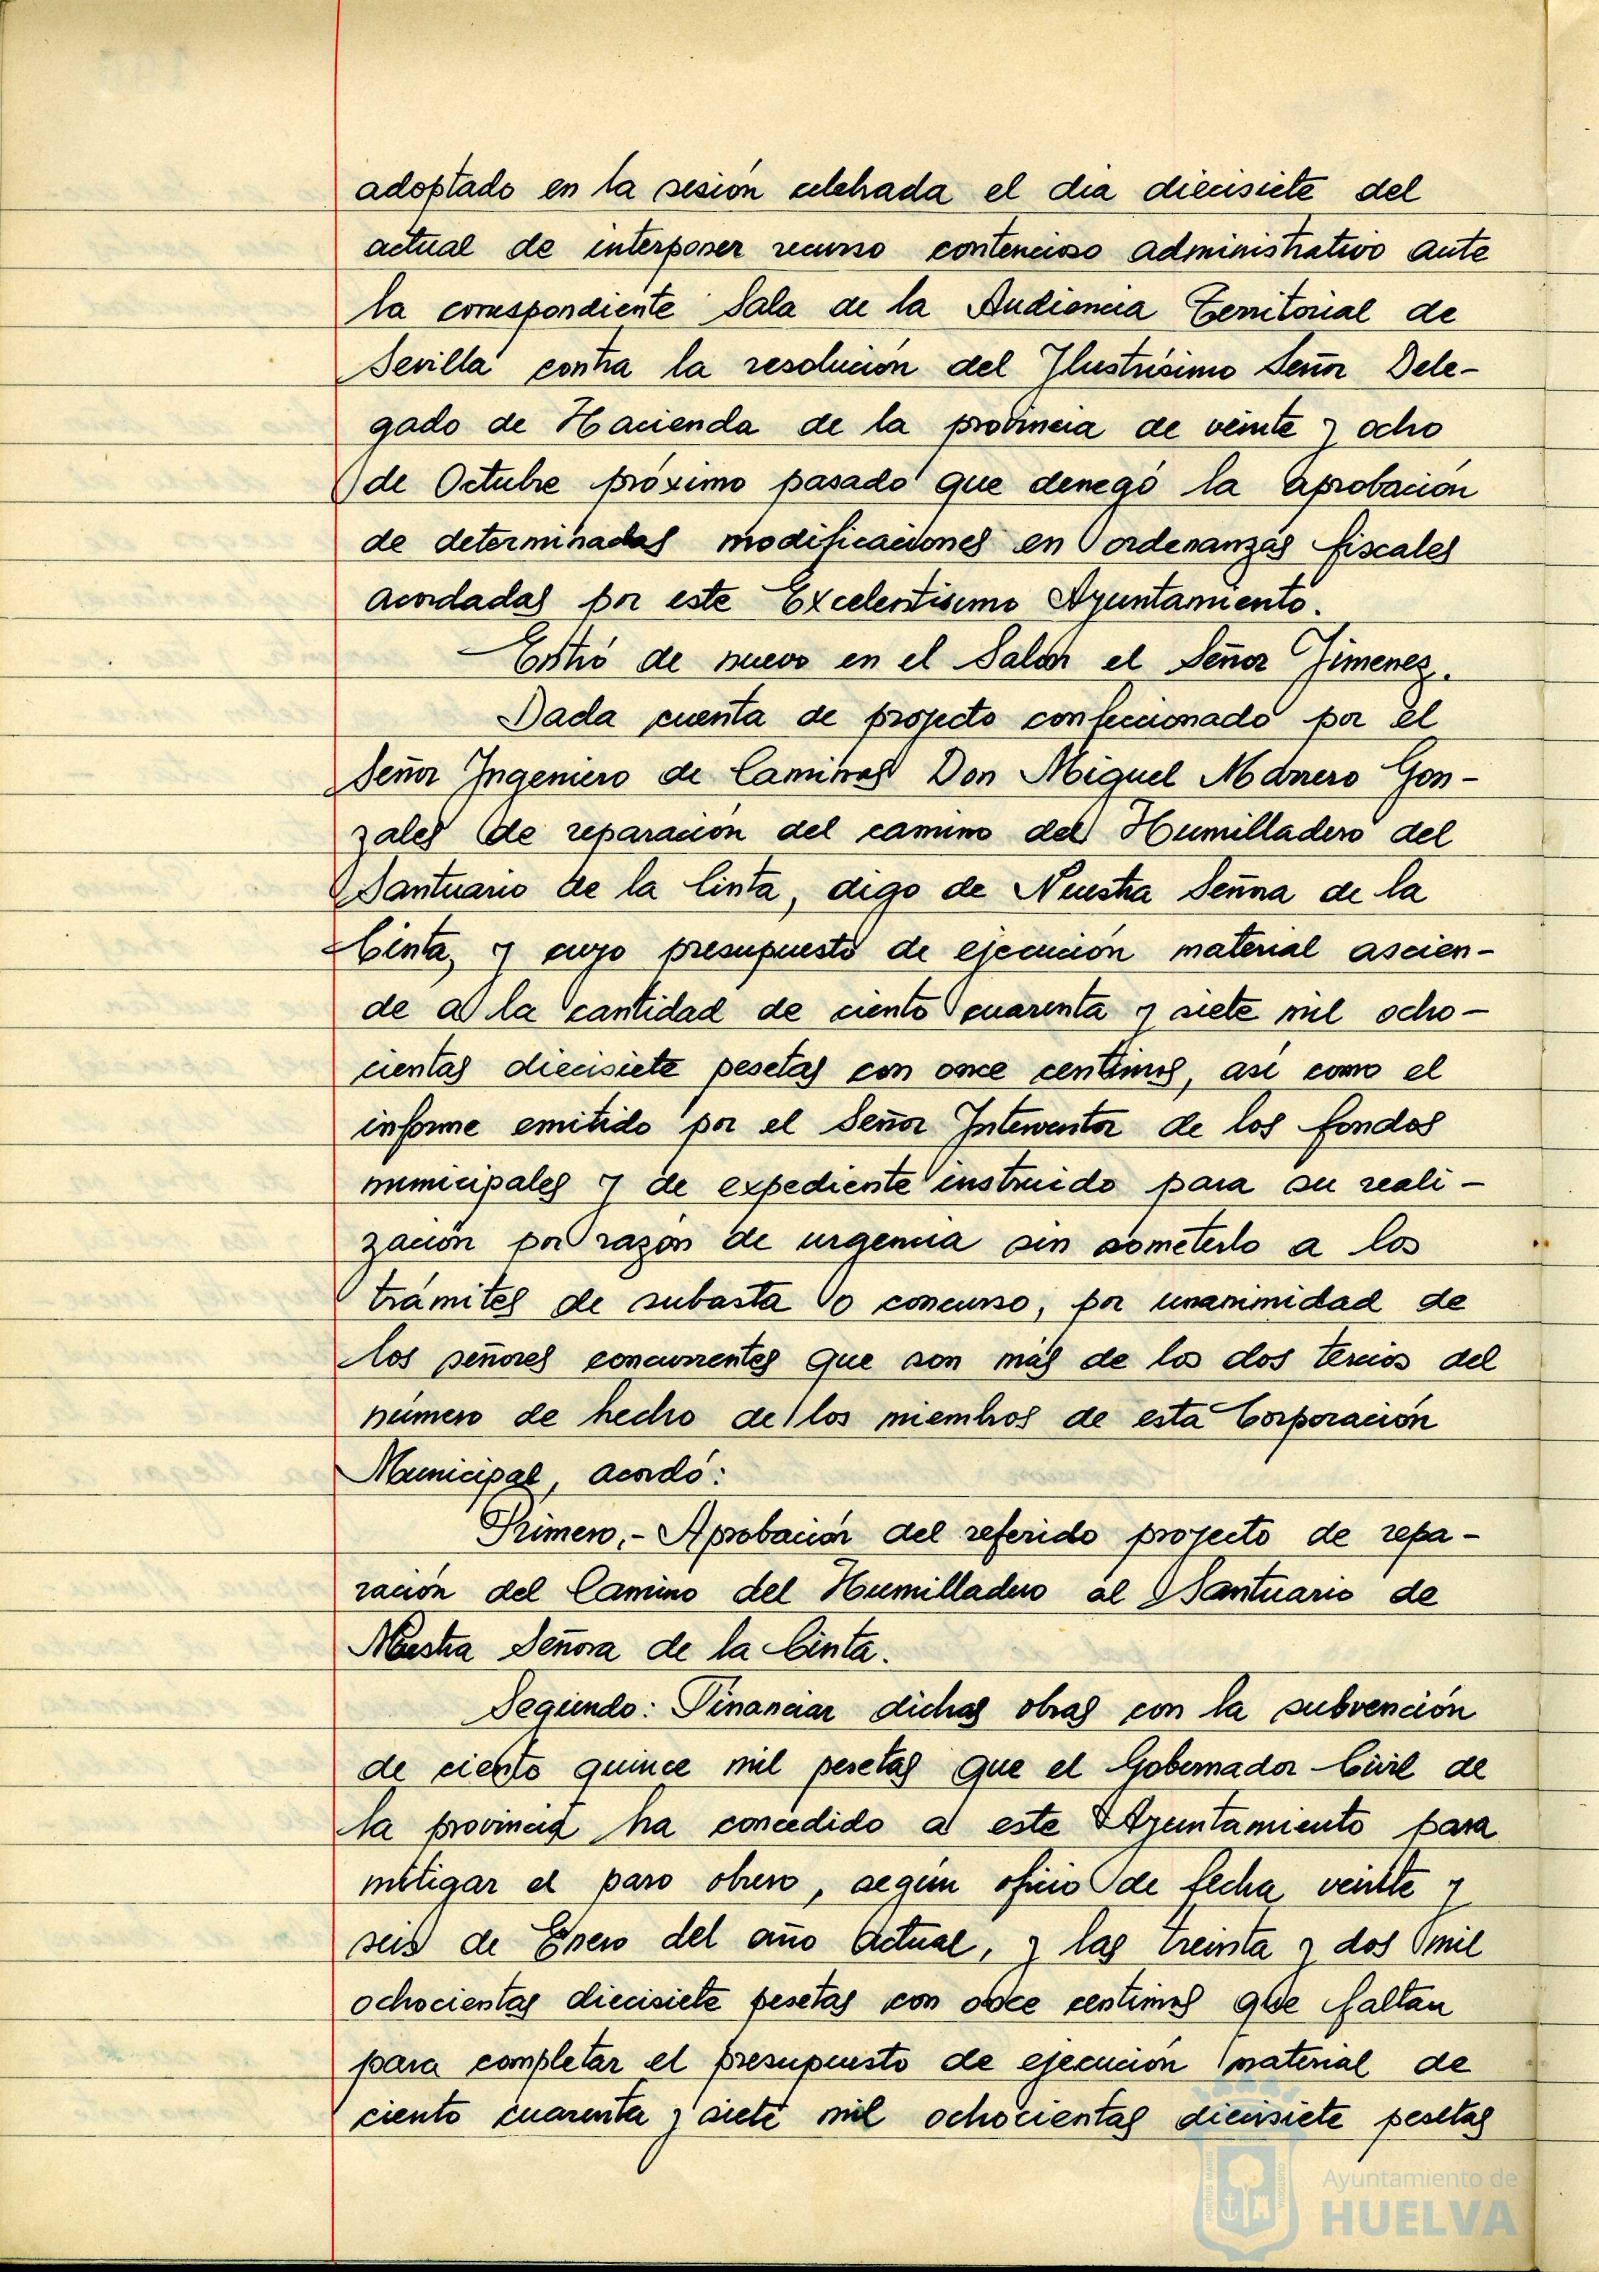 adoptado en la sesión celebrada el dia diecisiete del
actual de interponer recurso contencioso administrativo ante
la correspondiente Sala de la Audiencia Territorial de
Sevilla contra la resolución del Ilustrísimo Señor Dele-
gado de Hacienda de la provincia de veinte y ocho
de Octubre próximo pasado que denegó la aprobación
de determinadas modificaciones en ordenanzas fiscales
acordadas por este Excelentísimo Ayuntamiento.
Entró de nuevo en el Salon el Señor Jimenez.
Dada cuenta de proyecto confeccionado por el
Señor Ingeniero de Caminos Don Miguel Manero Gon-
zales de reparación del camino del Humilladero del
Santuario de la Cinta, digo de Nuestra Señora de la
Cinta, y cuyo presupuesto de ejecución material ascien-
de a la cantidad de ciento cuarenta y siete mil ocho-
cientas diecisiete pesetas con once centimos, así como el
informe emitido por el Señor Interventor de los fondos
municipales y de expediente instruido para su reali-
zación por razón de urgencia sin someterlo a los
trámites de subasta o concurso, por unanimidad de
los señores concurrentes que son más de los dos tercios del
número de hecho de los miembros de esta Corporación
Municipal, acordó:
Primero.- Aprobación del referido proyecto de repa-
ración del Camino del Humilladero al Santuario de
Nuestra Señora de la Cinta.
Segundo: Financiar dichas obras con la subvención
de ciento quince mil pesetas que el Gobernador Civil de
la provincia ha concedido a este Ayuntamiento para
mitigar el paro obrero, según oficio de fecha veinte y
seis de Enero del año actual, y las treinta y dos mil
ochocientas diecisiete pesetas con once centimos que faltan
para completar el presupuesto de ejecución material de
ciento cuarenta y siete mil ochocientas diecisiete pesetas
Ayuntamiento de
HUELVA